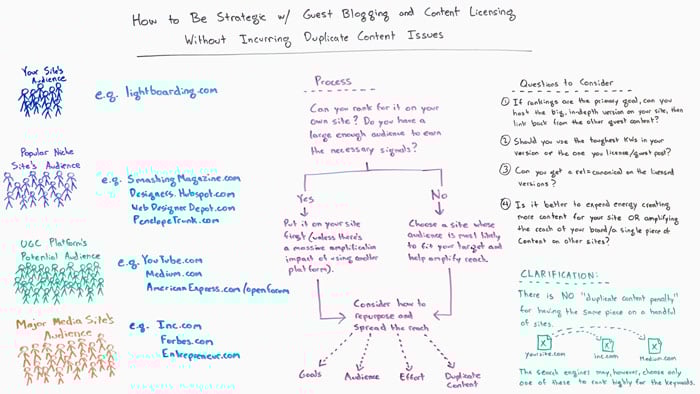 How to Be Strategic w/ Guest Blogging and Content Licensing
Without Incurring Duplicate Content Issues
Your Site's
Audience
e.g. lightboarding.com
Popular Niche
Site's Audience
e.g. SmashingMagazine.com
Designers.Hubspot.com
WebDesignerDepot.com
PenelopeTrunk.com
UGC Platform's
Potential Audience
e.g. YouTube.com
Medium.com
AmericanExpress.com/openforum
Major Media Site's
Audience
e.g. Inc.com
Forbes.com
Entrepreneur.com
Process
Can you rank for it on your
own site? Do you have a
large enough audience to earn
the necessary signals?
Yes
Put it on your site
first (unless there's
a massive amplification
impact of using another
platform).
No
Choose a site whose
audience is most likely
to fit your target and
help amplify reach.
Consider how to
repurpose and
spread the reach
Goals
Audience
Effort
Duplicate
Content
Questions to Consider
① If rankings are the primary goal, can you
host the big, in-depth version on your site, then
link back from the other guest content?
② Should you use the toughest KWs in your
version or the one you license/guest post?
③ Can you get a rel=canonical on the licensed
versions?
④ Is it better to expend energy creating
more content for your site OR amplifying
the reach of your board/a single piece of
content on other sites?
CLARIFICATION:
There is NO "duplicate content penalty"
for having the same piece on a handful
of sites.
X
X
X
yoursite.com
inc.com
Medium.com
The search engines may, however, choose only
one of these to rank highly for the keywords.